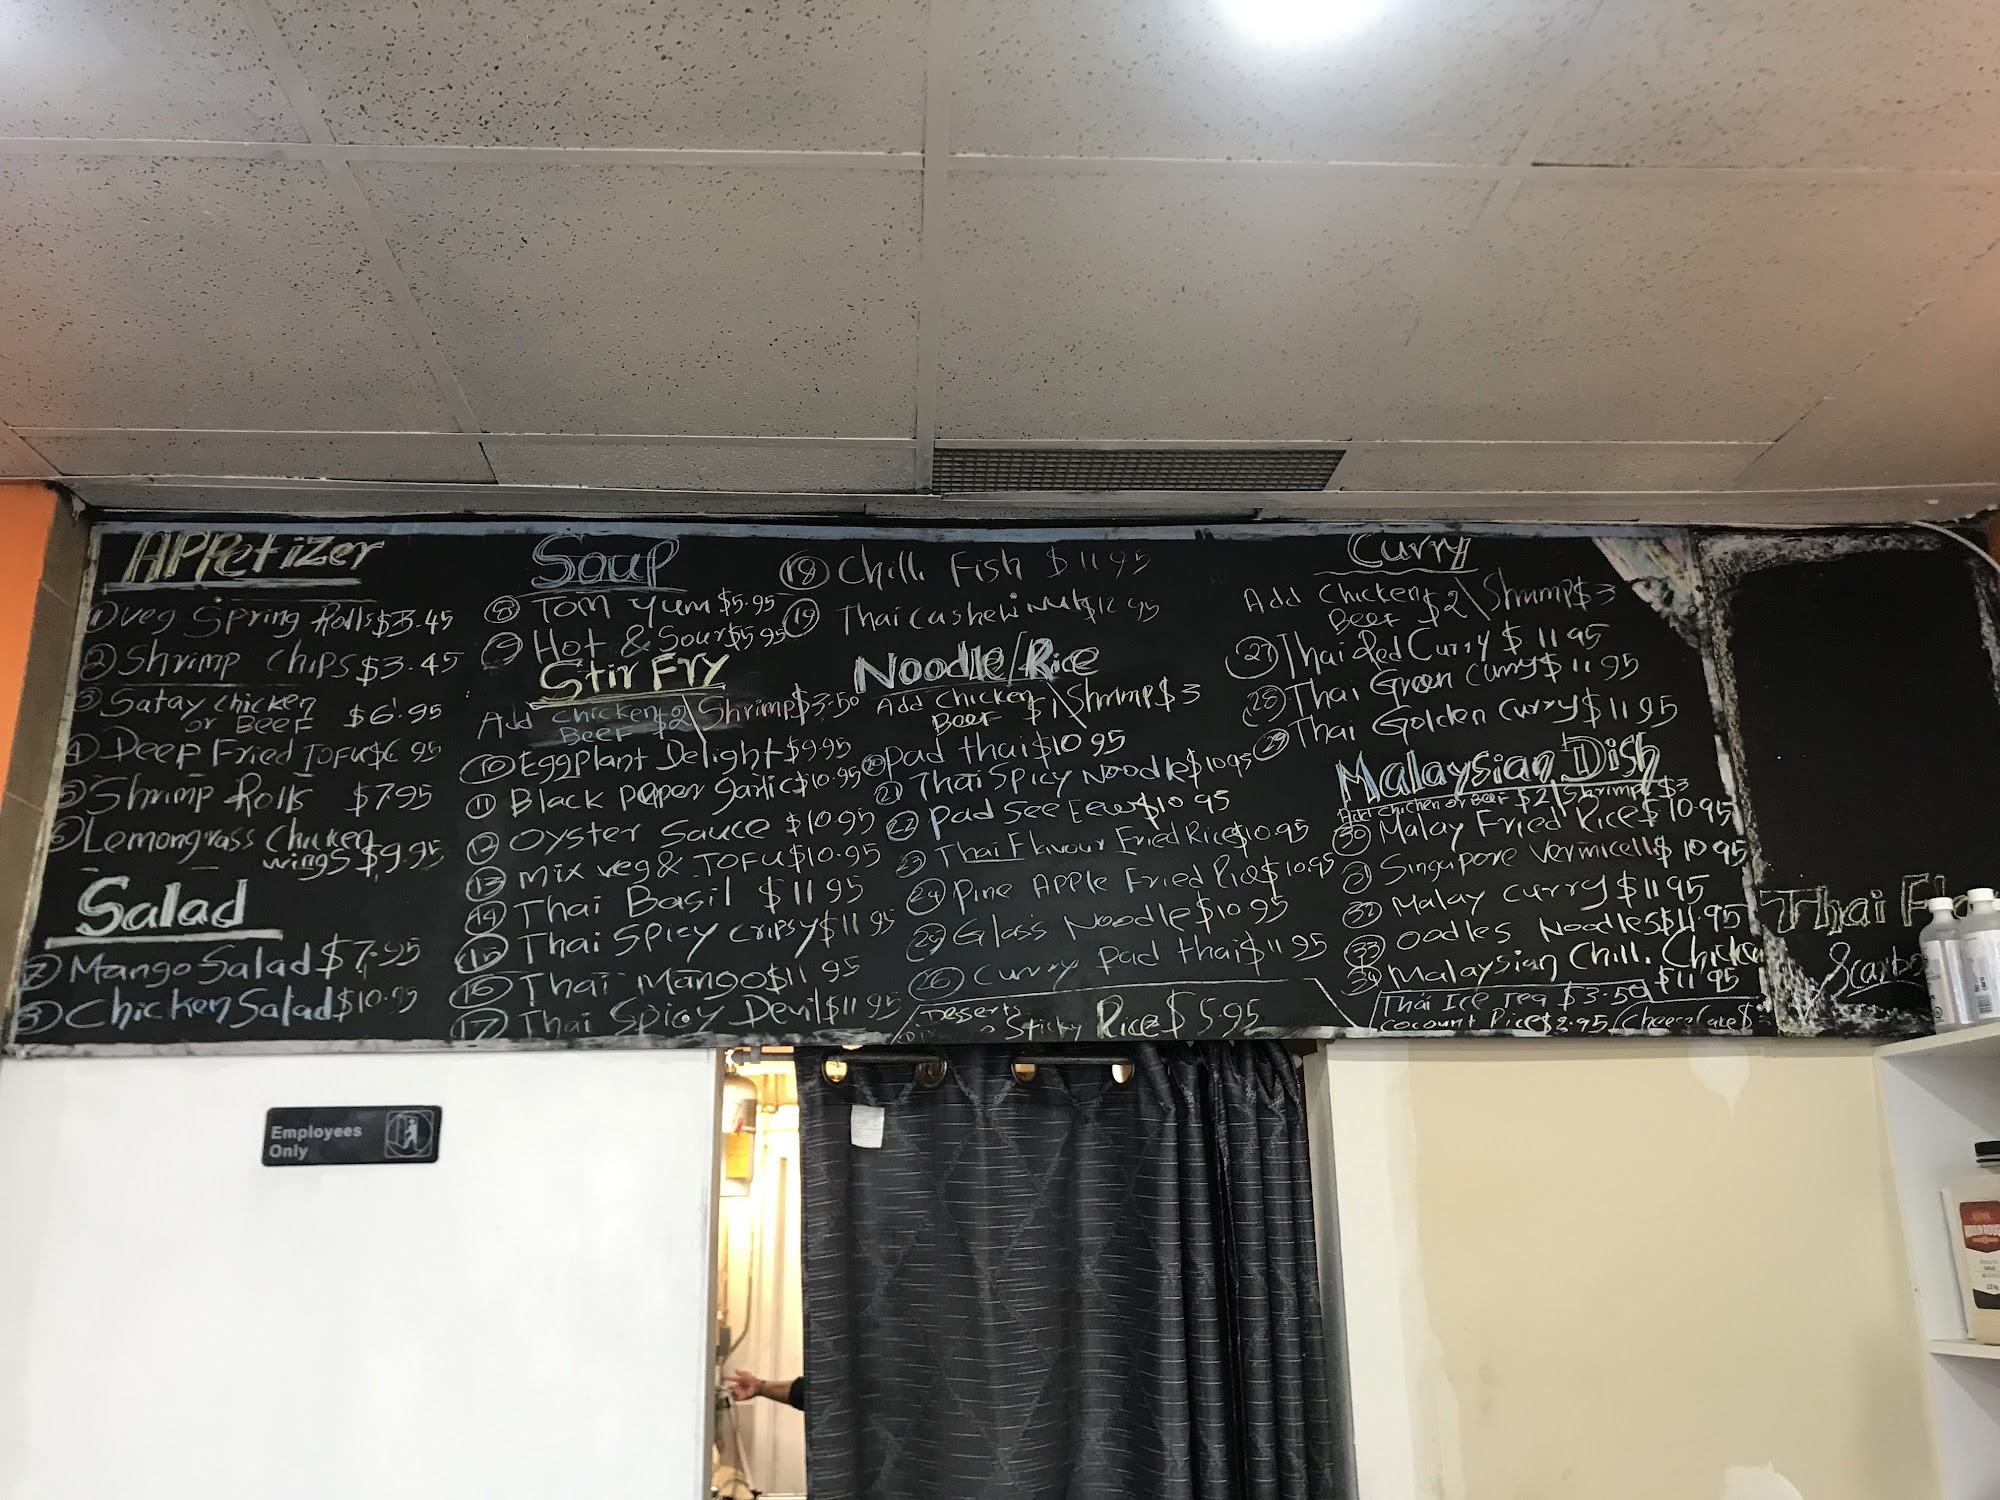 APPetizer
① Veg Spring Rolls $3.45
② Shrimp Chips $3.45
③ Satay chicken
or BEEF $6.95
④ Deep Fried TOFU $6 95
⑤ Shrimp Rolls $7.95
⑥ Lemongrass Chicken
wings $9.95
Salad
⑦ Mango Salad $7.95
⑧ Chicken Salad $10.95
Soup
⑧ Tom Yum $5.95
⑨ Hot & Sour $5.95
Stir Fry
Add chicken $2 \ Shrimp $3.50
BEEF
⑩ Eggplant Delight $9.95
⑪ Black peper garlic $10.95
⑫ Oyster Sauce $10.95
⑬ mix veg & TOFU $10.95
⑭ Thai Basil $11 95
⑮ Thai Spicy cripsy $11 95
⑯ Thai Mango $11 95
⑰ Thai Spicy Devil $11 95
⑱ Chilli Fish $11 95
⑲ Thai Cashew Nut $12 95
Noodle/Rice
Add Chicken
BEEF $1 \ Shrimp $3
⑳ pad thai $10 95
㉑ Thai Spicy Noodle $10 95
㉒ Pad See Eew $10 95
㉓ Thai Flavour Fried Rice $10.95
㉔ Pine Apple Fried Rice $10.95
㉕ Glass Noodle $10 95
㉖ Curry Pad thai $11 95
Desserts
Sticky Rice $5.95
Curry
Add Chicken
BEEF $2 \ Shrimp $3
㉗ Thai Red Curry $11 95
㉘ Thai Green Curry $11 95
㉙ Thai Golden Curry $11 95
Malaysian Dish
Add Chicken or Beef $2 \ Shrimp $3
㉚ Malay Fried Rice $10.95
㉛ Singapore Vermicelli $10 95
㉜ Malay Curry $11 95
㉝ oodles Noodles $11.95
㉞ Malaysian Chilli Chicken
$11 95
Thai Ice Tea $3.50
Cocount Rice $2.95 / Cheese Cake $
Thai
Scarbo
Employees
Only